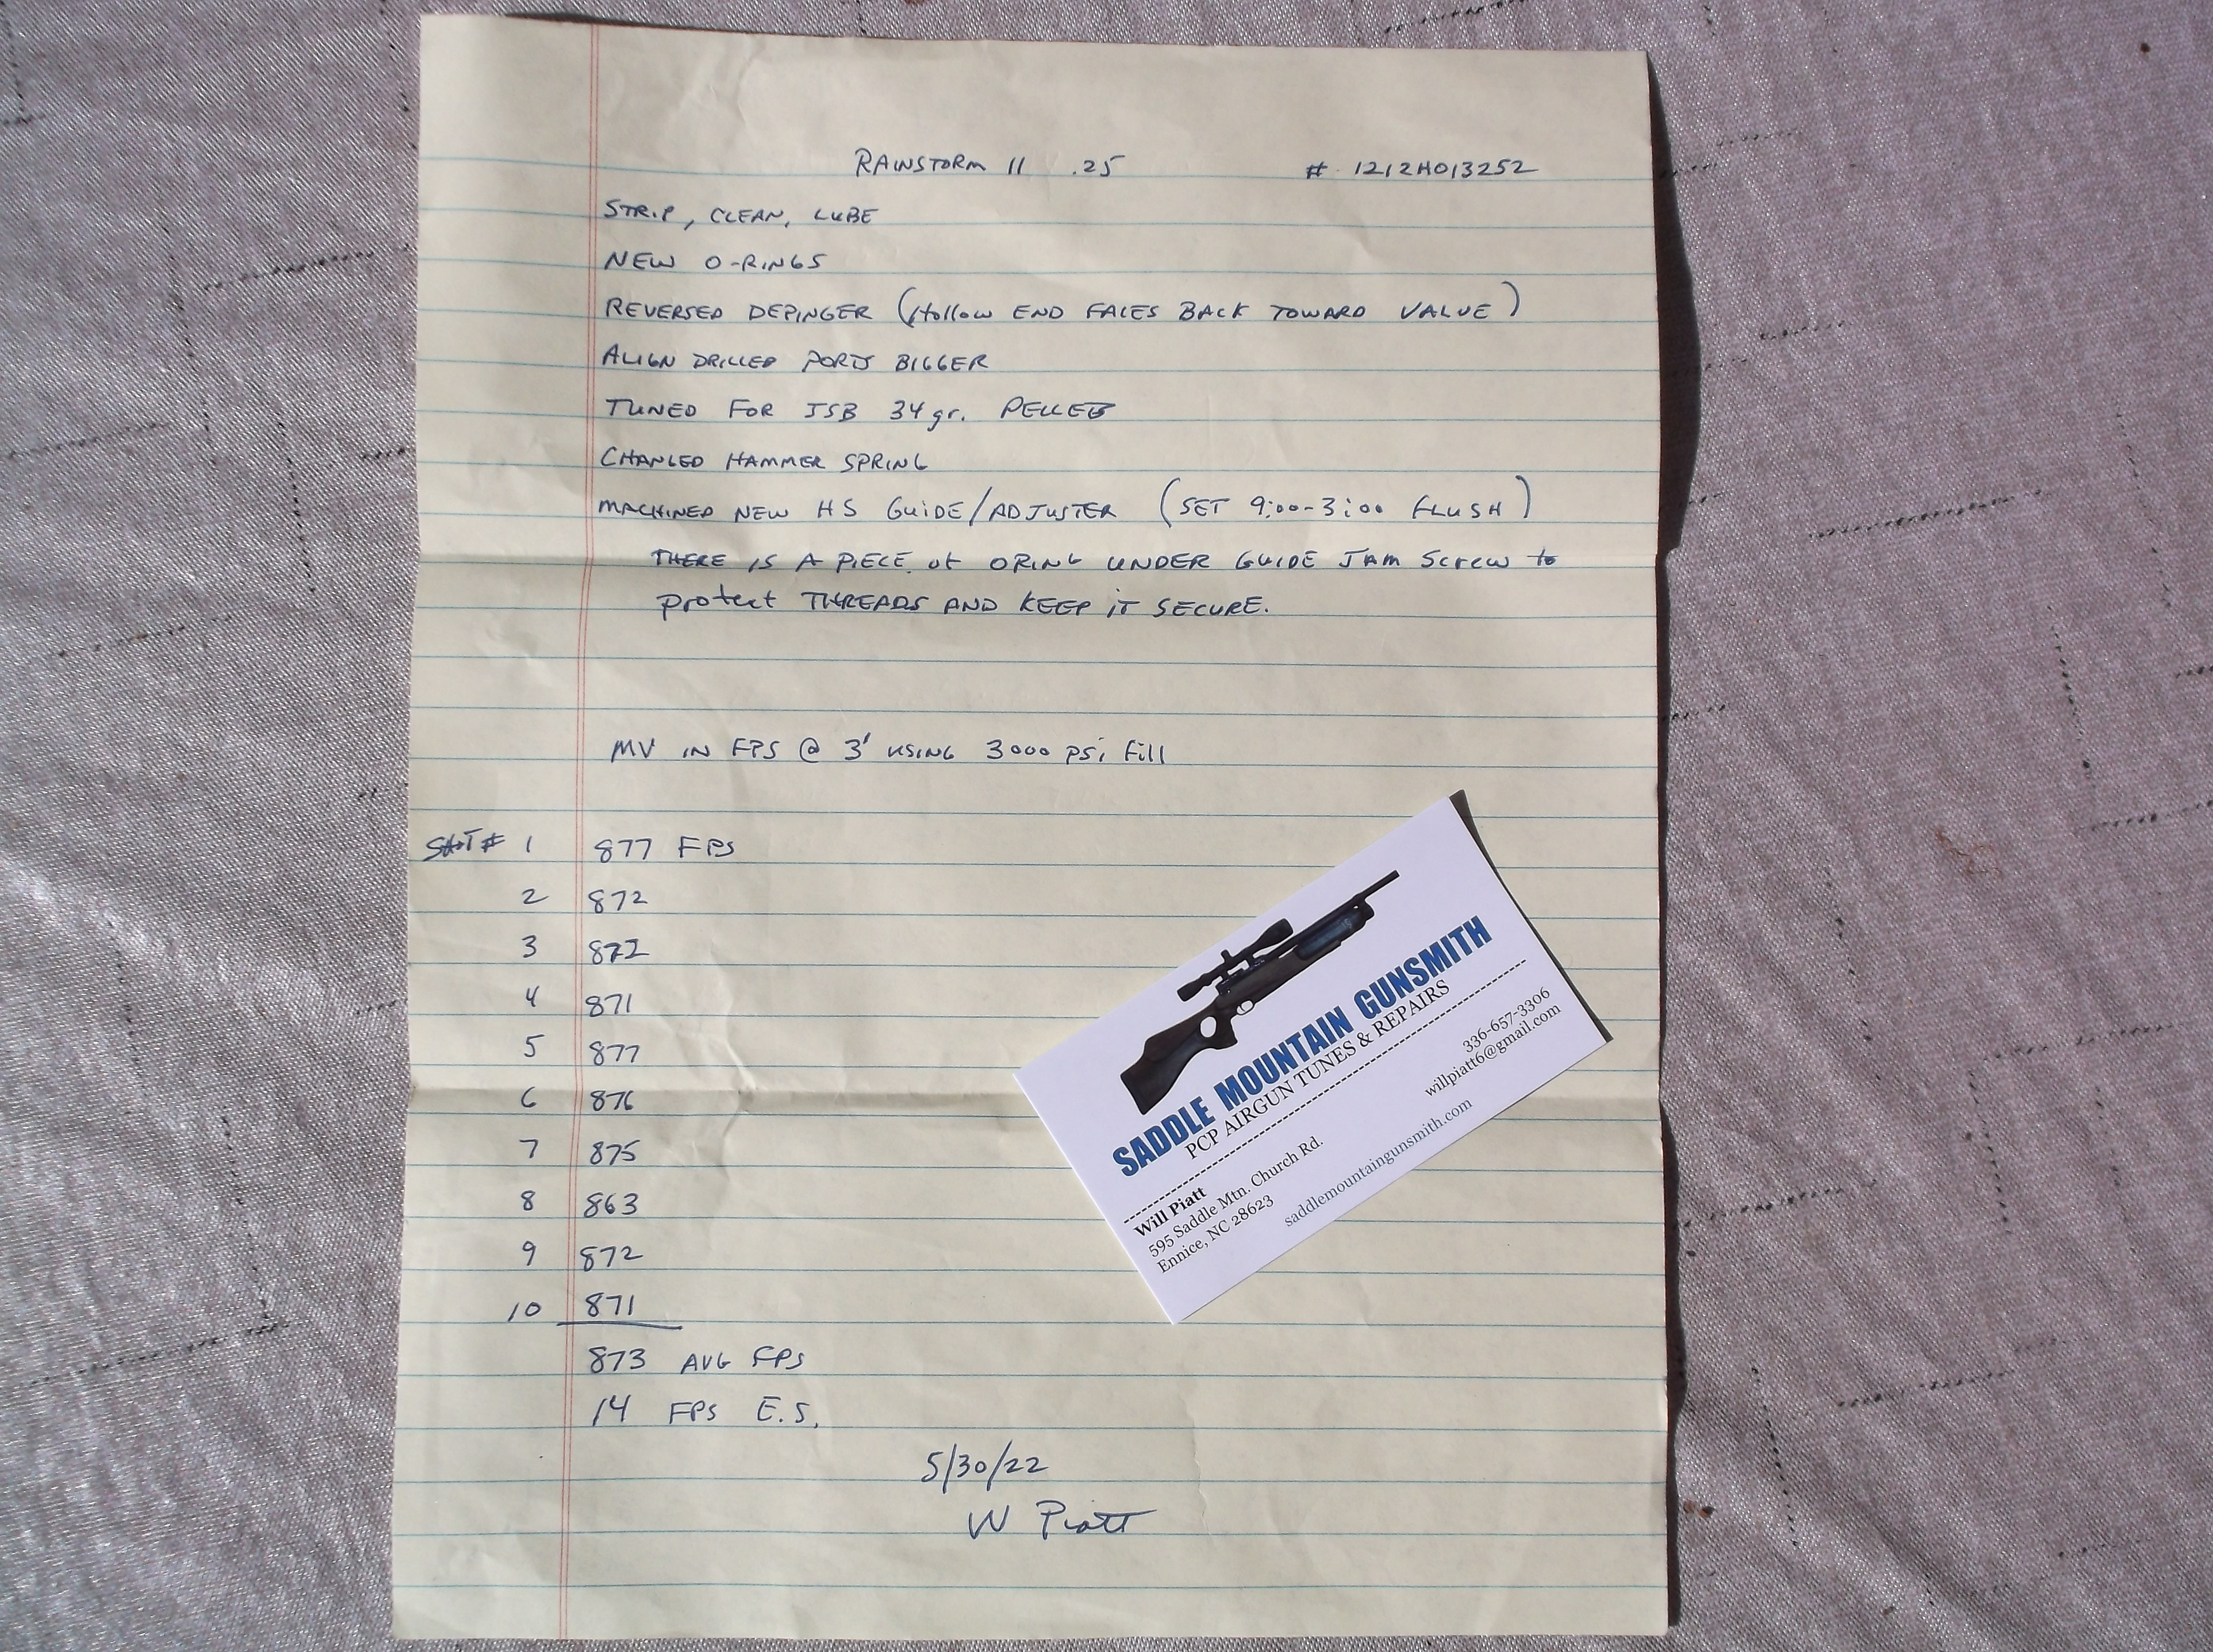 RAINSTORM II .25 # 1212H013252
STRIP, CLEAN, LUBE
NEW O-RINGS
REVERSED DEPINGER (Hollow END FACES BACK TOWARD VALVE)
ALIGN DRILLED PORTS BIGGER
TUNED FOR JSB 34 gr. PELLETS
CHANGED HAMMER SPRING
MACHINED NEW HS GUIDE/ADJUSTER (SET 9:00-3:00 FLUSH)
THERE IS A PIECE of ORING UNDER GUIDE JAM Screw to
protect THREADS AND KEEP iT SECURE.
MV IN FPS @ 3' USING 3000 psi Fill
SHOT # 1 877 FPS
2 872
3 872
4 871
5 877
6 876
7 875
8 863
9 872
10 871
873 AVG FPS
14 FPS E.S.
5/30/22
W Piatt
SADDLE MOUNTAIN GUNSMITH
PCP AIRGUN TUNES & REPAIRS
336-657-3306
willpiatt6@gmail.com
Will Piatt
595 Saddle Mtn. Church Rd.
Ennice, NC 28623
saddlemountaingunsmith.com